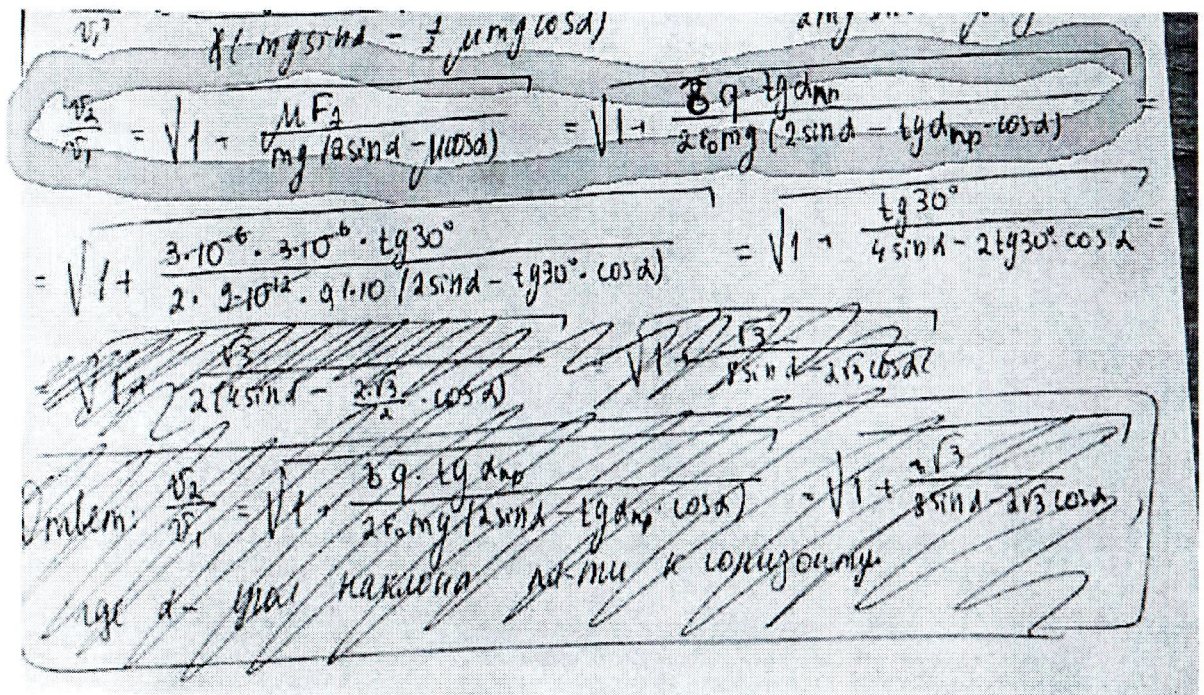 v₁² 8(-mgsinα - ½ μmgcosα) 2mg sin
v₂/v₁ = √(1 + μF₂/(mg(2sinα - μcosα))) = √(1 + б q · tgα_пр/(2ε₀mg(2sinα - tgα_пр · cosα))) =
= √(1 + 3·10⁻⁶ · 3·10⁻⁶ · tg30°/(2 · 9·10⁻¹² · 0,1·10(2sinα - tg30° · cosα))) = √(1 + tg30°/(4sinα - 2tg30° · cosα)) =
= √(1 + √3/(2(4sinα - 2·√3/2 · cosα))) = √(1 + √3/(8sinα - 2√3cosα))
Ответ: v₂/v₁ = √(1 + бq · tgα_пр/(2ε₀mg(2sinα - tgα_пр · cosα))) = √(1 + √3/(8sinα - 2√3cosα)),
где α - угол наклона пл-ти к горизонту.